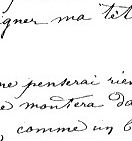 igner ma tet
ne penserai rien
e montera da
, comme un b